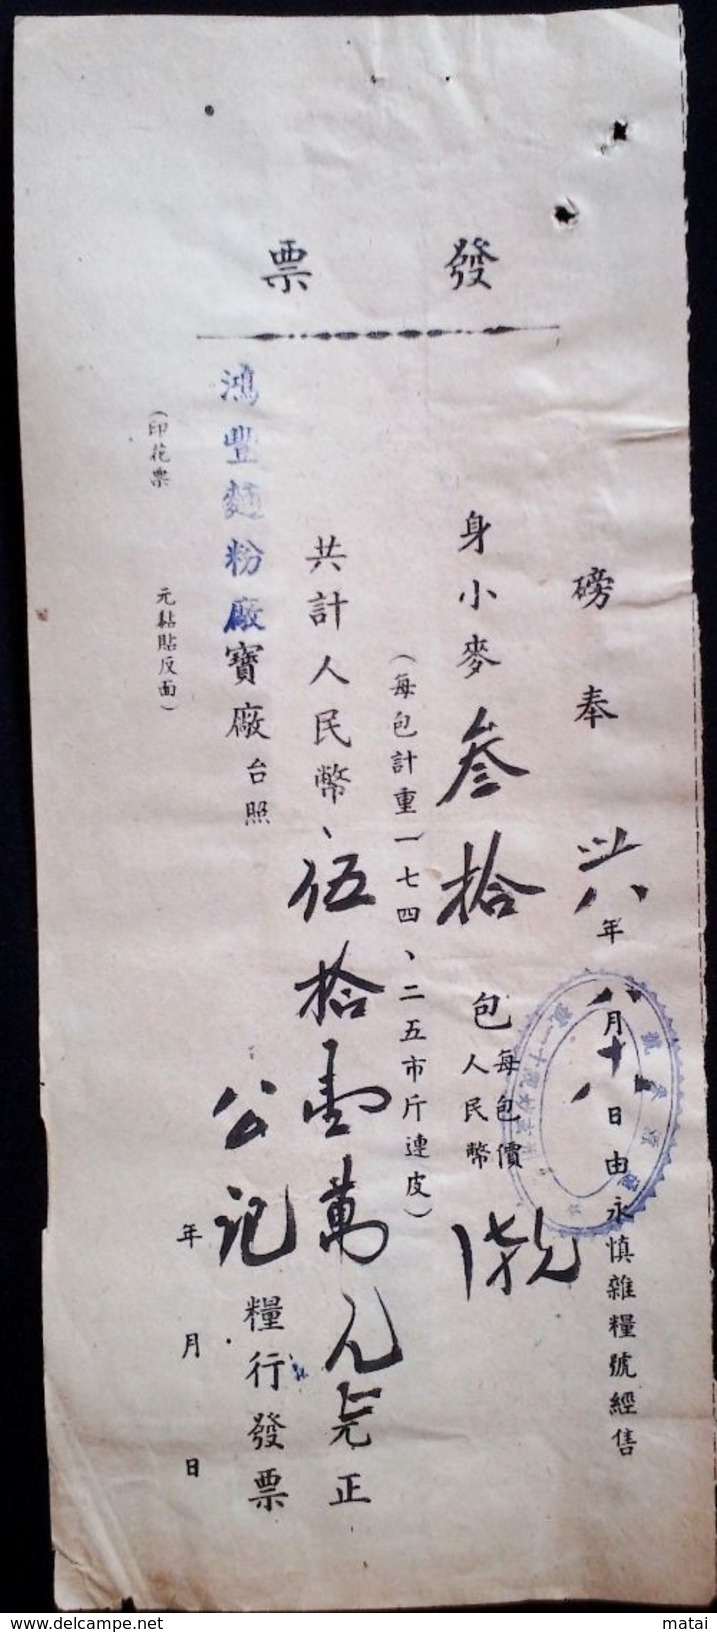 發票
磅奉
卅八年八月十八日由永慎雜糧號經售
身小麥叁拾包每包價人民幣
(每包計重一七四、二五市斤連皮)
共計人民幣、伍拾壹萬元正
鴻豐麵粉廠寶廠台照
公記糧行發票
(印花票 元黏貼反面)
年 月 日
www.delcampe.net
matai